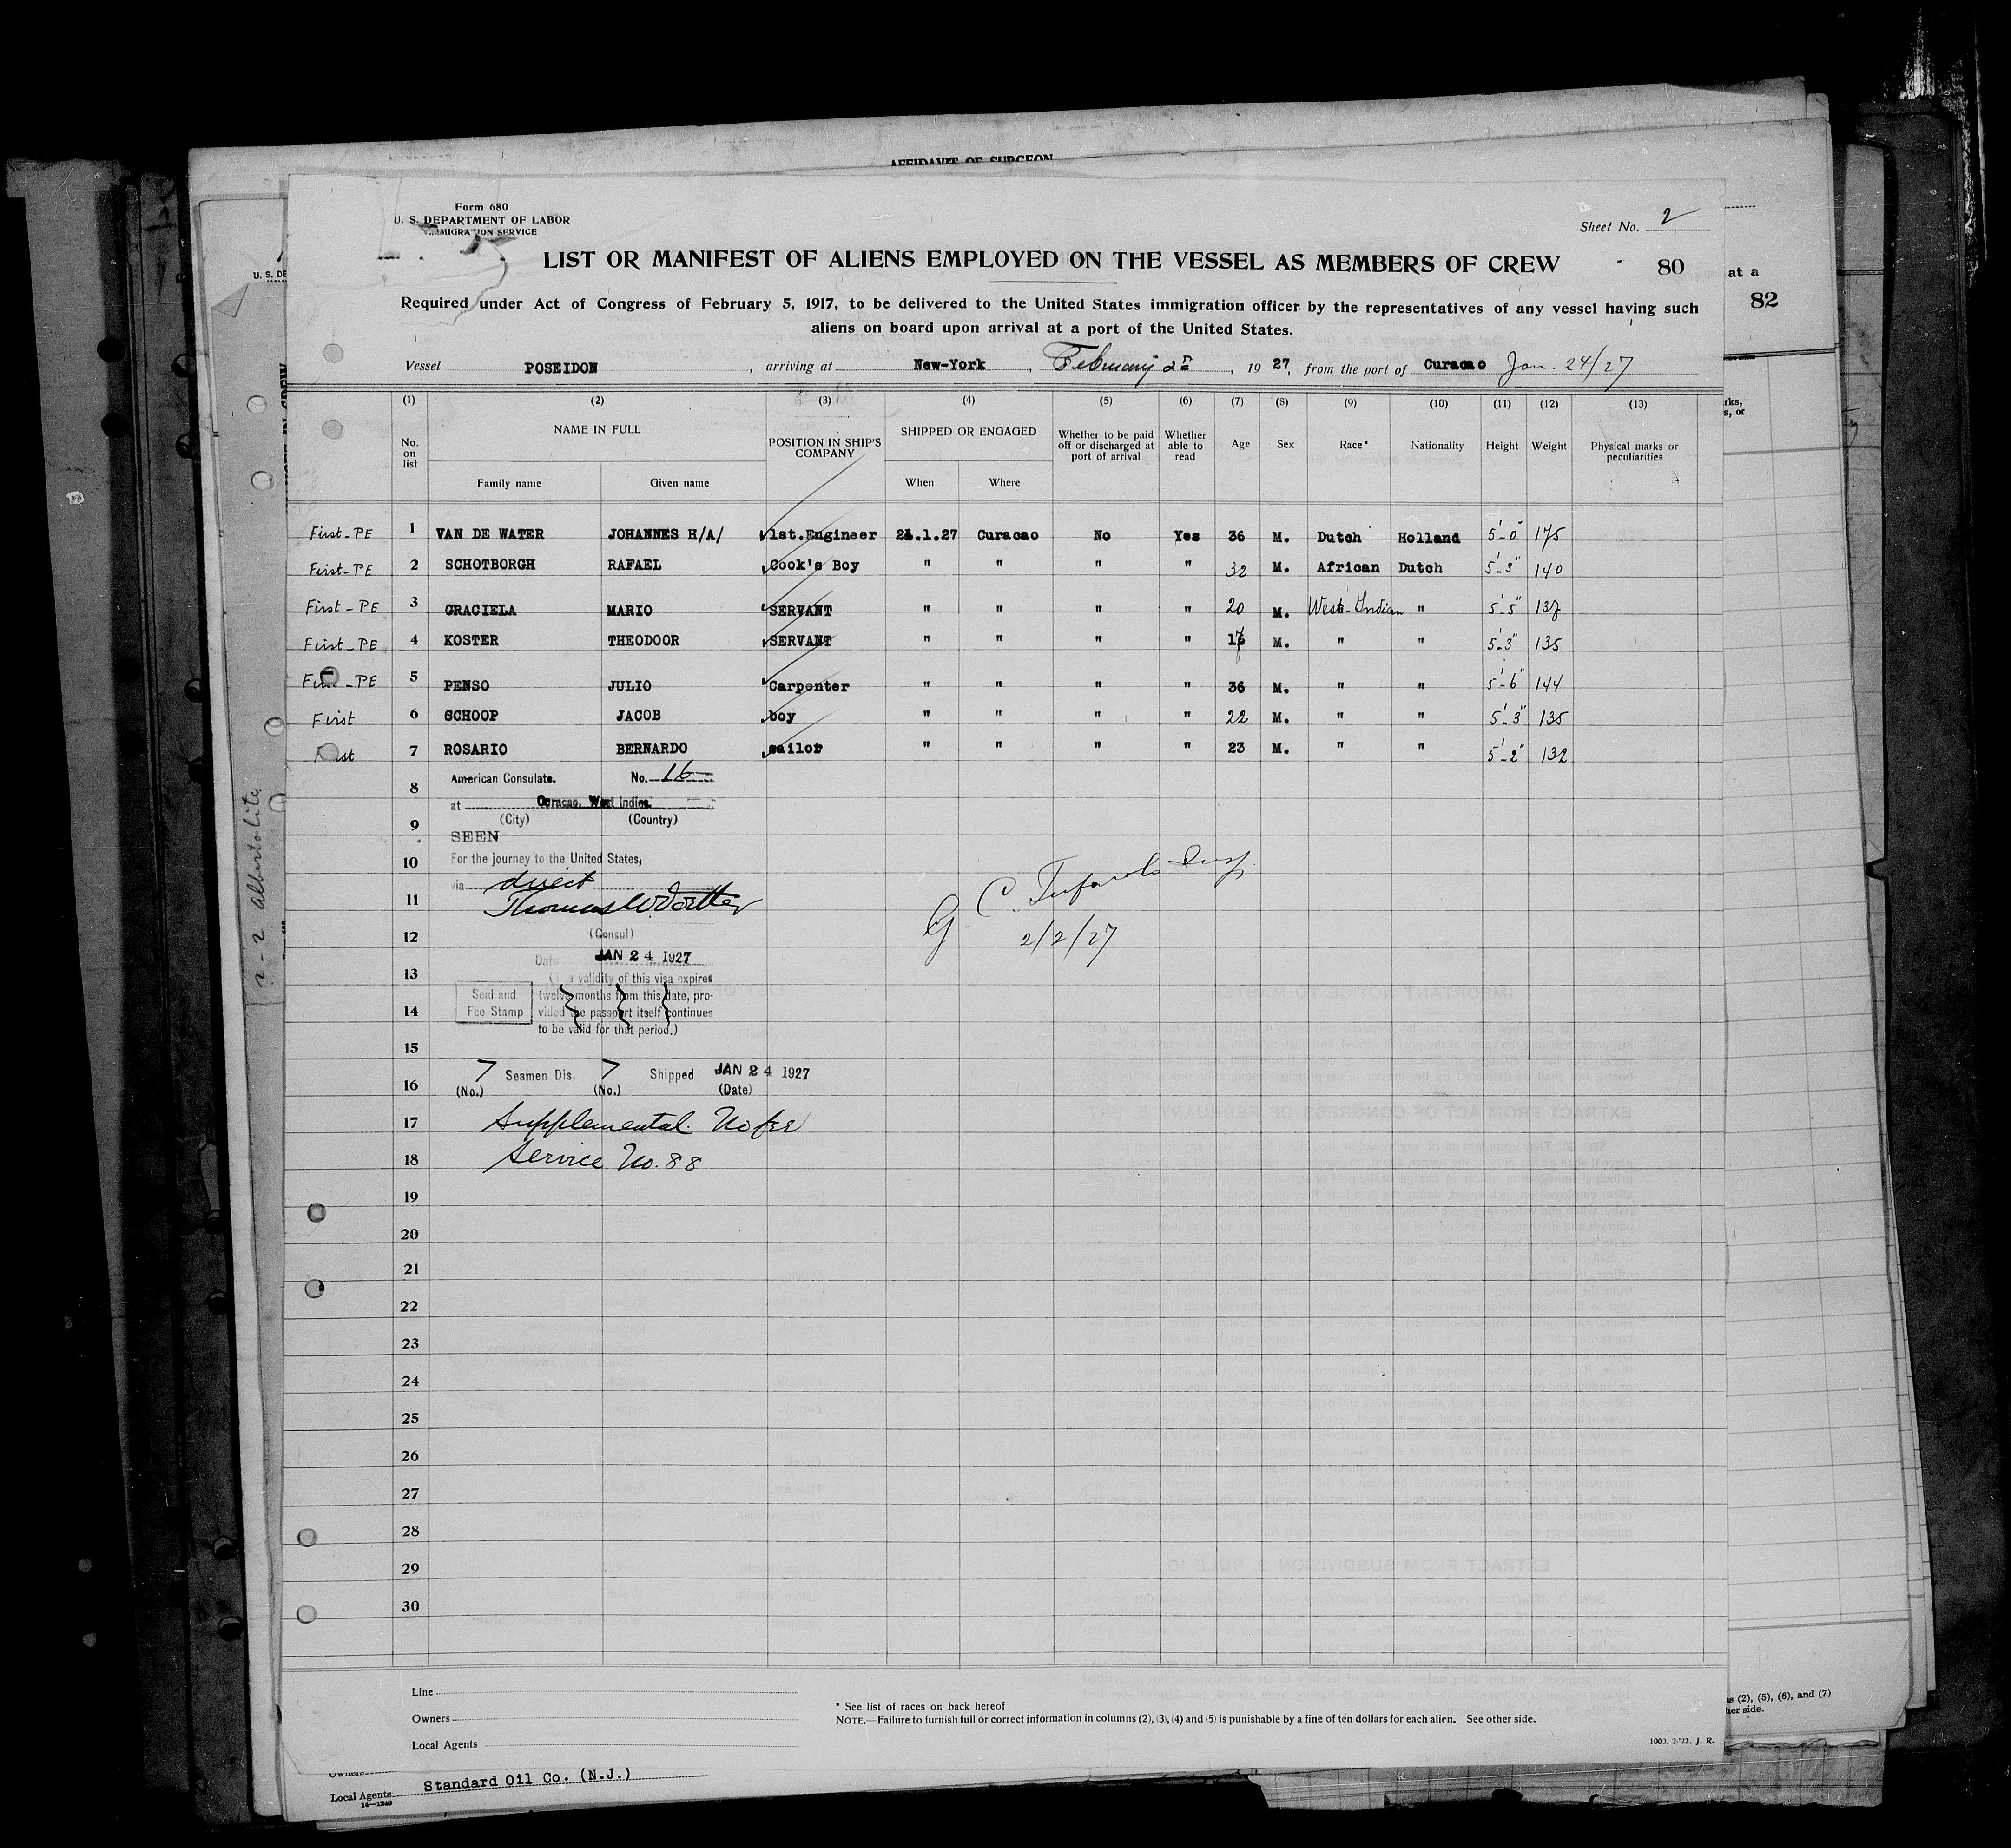 AFFIDAVIT OF SURGEON
Form 680
U. S. DEPARTMENT OF LABOR
IMMIGRATION SERVICE
Sheet No. 2
LIST OR MANIFEST OF ALIENS EMPLOYED ON THE VESSEL AS MEMBERS OF CREW 80
at a
82
U. S. DE
Required under Act of Congress of February 5, 1917, to be delivered to the United States immigration officer by the representatives of any vessel having such
aliens on board upon arrival at a port of the United States.
Vessel POSEIDON, arriving at New-York, February 2, 1927, from the port of Curacao Jan. 24/27
(1) (2) (3) (4) (5) (6) (7) (8) (9) (10) (11) (12) (13)
No. on list NAME IN FULL POSITION IN SHIP'S COMPANY SHIPPED OR ENGAGED Whether to be paid off or discharged at port of arrival Whether able to read Age Sex Race* Nationality Height Weight Physical marks or peculiarities
Family name Given name When Where
First-PE 1 VAN DE WATER JOHANNES H/A/ 1st.Engineer 24.1.27 Curacao No Yes 36 M. Dutch Holland 5'-0" 175
First-PE 2 SCHOTBORGH RAFAEL Cook's Boy " " " " 32 M. African Dutch 5'-3" 140
First-PE 3 GRACIELA MARIO SERVANT " " " " 20 M. West-Indian " 5'-5" 137
First-PE 4 KOSTER THEODOOR SERVANT " " " " 17 M. " " 5'-3" 135
First-PE 5 PENSO JULIO Carpenter " " " " 36 M. " " 5'-6" 144
First 6 SCHOOP JACOB boy " " " " 22 M. " " 5'-3" 135
First 7 ROSARIO BERNARDO sailor " " " " 23 M. " " 5'-2" 132
8 American Consulate. No. 16
at Curacao, West Indies.
(City) (Country)
9 SEEN
10 For the journey to the United States,
via direct
11
12 (Consul)
Date JAN 24 1927
13 (The validity of this visa expires
twelve months from this date, pro-
14 vided the passport itself continues
to be valid for that period.)
Seal and
Fee Stamp
G. C. Insp.
2/2/27
15
7 Seamen Dis. 7 Shipped JAN 24 1927
16 (No.) (No.) (Date)
17 Supplemental No fee
18 Service No. 88
19
20
21
22
23
24
25
26
27
28
29
30
Line
Owners
Local Agents
* See list of races on back hereof
NOTE.—Failure to furnish full or correct information in columns (2), (3), (4) and (5) is punishable by a fine of ten dollars for each alien. See other side.
1000. 2-'22. J. R.
s (2), (5), (6), and (7)
her side.
Owners
Local Agents Standard Oil Co. (N.J.)
14—1240